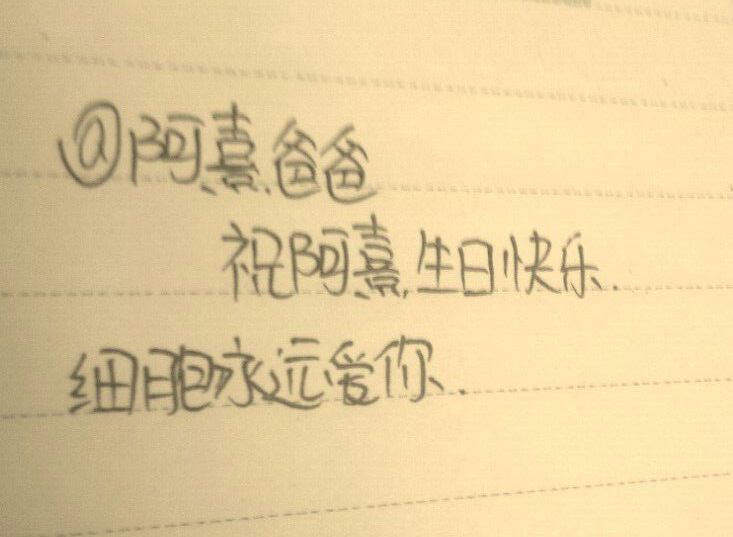 @阿熹爸爸
祝阿熹生日快乐.
细胞永远爱你.